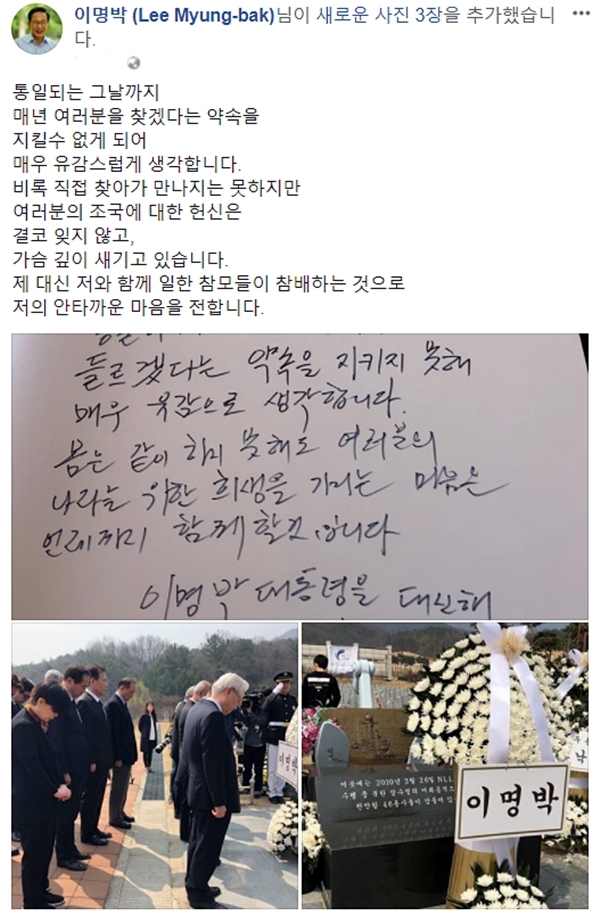 이명박 (Lee Myung-bak)님이 새로운 사진 3장을 추가했습니
다.
통일되는 그날까지
매년 여러분을 찾겠다는 약속을
지킬수 없게 되어
매우 유감스럽게 생각합니다.
비록 직접 찾아가 만나지는 못하지만
여러분의 조국에 대한 헌신은
결코 잊지 않고,
가슴 깊이 새기고 있습니다.
제 대신 저와 함께 일한 참모들이 참배하는 것으로
저의 안타까운 마음을 전합니다.
들르겠다는 약속을 지키지 못해
매우 유감으로 생각합니다.
몸은 같이 하지 못해도 여러분의
나라를 위한 희생을 기리는 마음은
언제까지 함께 할것입니다
이명박 대통령을 대신해
이명박
이곳에는 2010년 3월 26일 NLL
천안함 46용사들이 잠들어
이명박